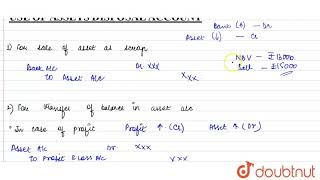 USE OF ASSETS DISPOSAL ACCOUNT
Bank (A) - Dr
Asset (↓) - Cr
1) For sale of asset as scrap
NBV - ₹
Sell - ₹15000
Bank A/c Dr. XXX
To Asset A/c XXX
2) For transfer of balance in asset a/c
* In case of profit Profit ↑ (Cr) Asset ↑ (Dr)
Asset A/c Dr XXX
To Profit & Loss A/c XXX
doubtnut